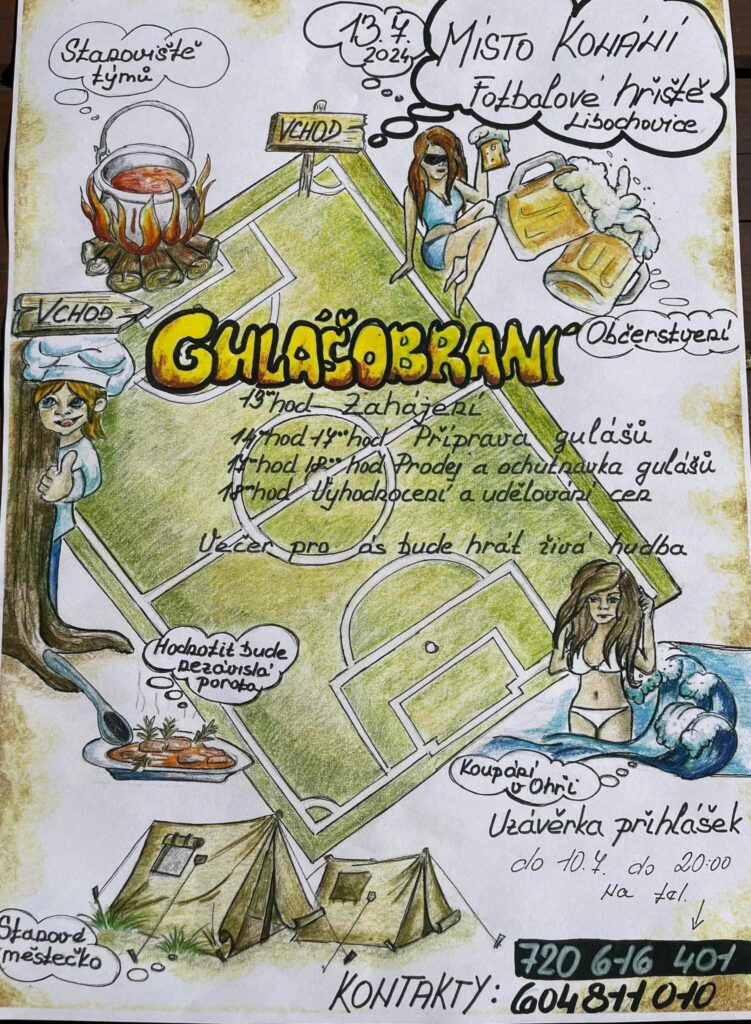 Stanoviště
týmů
13.7.
2024
Místo Konání
Fotbalové hřiště
Libochovice
VCHOD
VCHOD
Občerstvení
GULÁŠOBRANÍ
13ºº hod - Zahájení
14ºº hod 17ºº hod Příprava gulášů
17ºº hod 18ºº hod Prodej a ochutnávka gulášů
18ºº hod Vyhodnocení a udělování cen
Večer pro ás bude hrát živá hudba
Hodnotit bude
nezávislá
porota
Koupání
v Ohři
Uzávěrka přihlášek
do 10.7. do 20:00
Na tel.
Stanové
městečko
720 616 401
KONTAKTY: 604811010